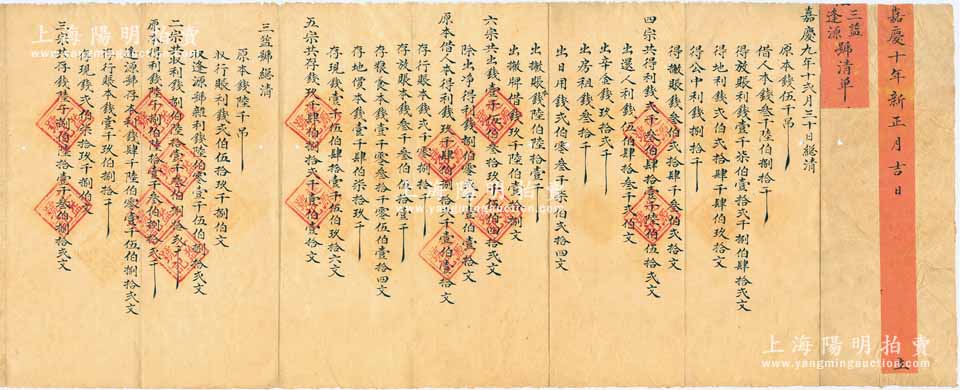 嘉慶十年新正月吉日 立
三益
逢源號清單
嘉慶九年十弍月三十日總清
原本錢伍千吊
借人本錢叁千陸伯捌拾千
得放賬利錢壹千柒伯壹拾弍千捌伯肆拾弍文
得地利錢弍伯肆拾肆千肆伯玖拾文
得公中利錢捌拾千
得撇賬錢叁伯弍拾肆千叁伯弍拾文
四宗共得利錢弍千叁伯肆拾壹千陸伯伍拾弍文
出還人利錢
出辛金錢
出房租錢叁拾千
出日用錢弍伯零叁千柒伯弍拾四文
出撇賬錢陸伯陸拾壹千
出撇牌借錢玖千陸伯壹拾捌文
六宗共出錢壹千
除出净得利錢捌伯零叁千壹伯壹拾文
原本借人本得利錢玖千肆伯捌拾弍千壹伯壹拾文
存行賬本錢弍千零捌拾千
存放賬本錢弍千叁伯伍拾壹千
存粮食本錢壹千零叁拾千零伍伯壹拾四文
存地價本錢弍千肆伯柒拾玖千
存現錢壹千伍伯肆拾壹千伍伯玖拾六文
五宗共存錢玖千肆伯捌拾弍千壹伯壹拾文
三益號總清
原本錢陸千吊
收行賬利錢弍伯伍拾玖千捌伯文
收逢源號熊利錢陸零壹千伍伯捌拾弍文
二宗共收利錢捌伯陸拾壹千叁伯捌拾弍文
原本得利錢陸千捌伯陸拾壹千叁伯捌拾弍文
逢源號存本利錢肆千陸伯零壹千伍伯捌拾弍文
存行賬本錢壹千玖伯捌拾千
存現錢弍伯柒拾玖千捌伯文
三宗共存錢陸千捌伯陸拾壹千叁伯捌拾弍文
上海陽明拍賣
www.yangmingauction.com
上海陽明拍賣
www.yangmingauction.com
上海陽明拍賣
www.yangmingauction.com